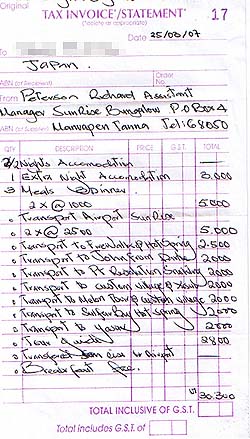 Original
TAX INVOICE/STATEMENT 17
(delete as appropriate)
Date 25/03/07
To
JAPAN.
ABN (of Recipient) Order No.
From Peterson Richard Assistant
Manager SunRise Bungalow P.O Box 4
ABN (of Supplier) Tanna Tel: 68050
QTY DESCRIPTION PRICE G.S.T. TOTAL
2 Nights Accomodation
1 Extra Night Accomodation 3,000
3 Meals Dinner.
2 x @ 1000 5000
Transport Airport SunRise
2 x @ 2500 5.000
Transport To & Hot Spring 2.500
Transport to John From 2000
Transport to Pt Resolution 2000
Transport to Custom Village 2000
Transport to & Custom village 2000
Transport to Sulfur Bay Hot Spring 2000
Transport to Yasur 2000
Tour Guide 2800
Transport Sun rise to Airport
Breakfast free.
VT 30.300
TOTAL INCLUSIVE OF G.S.T.
Total includes G.S.T. of